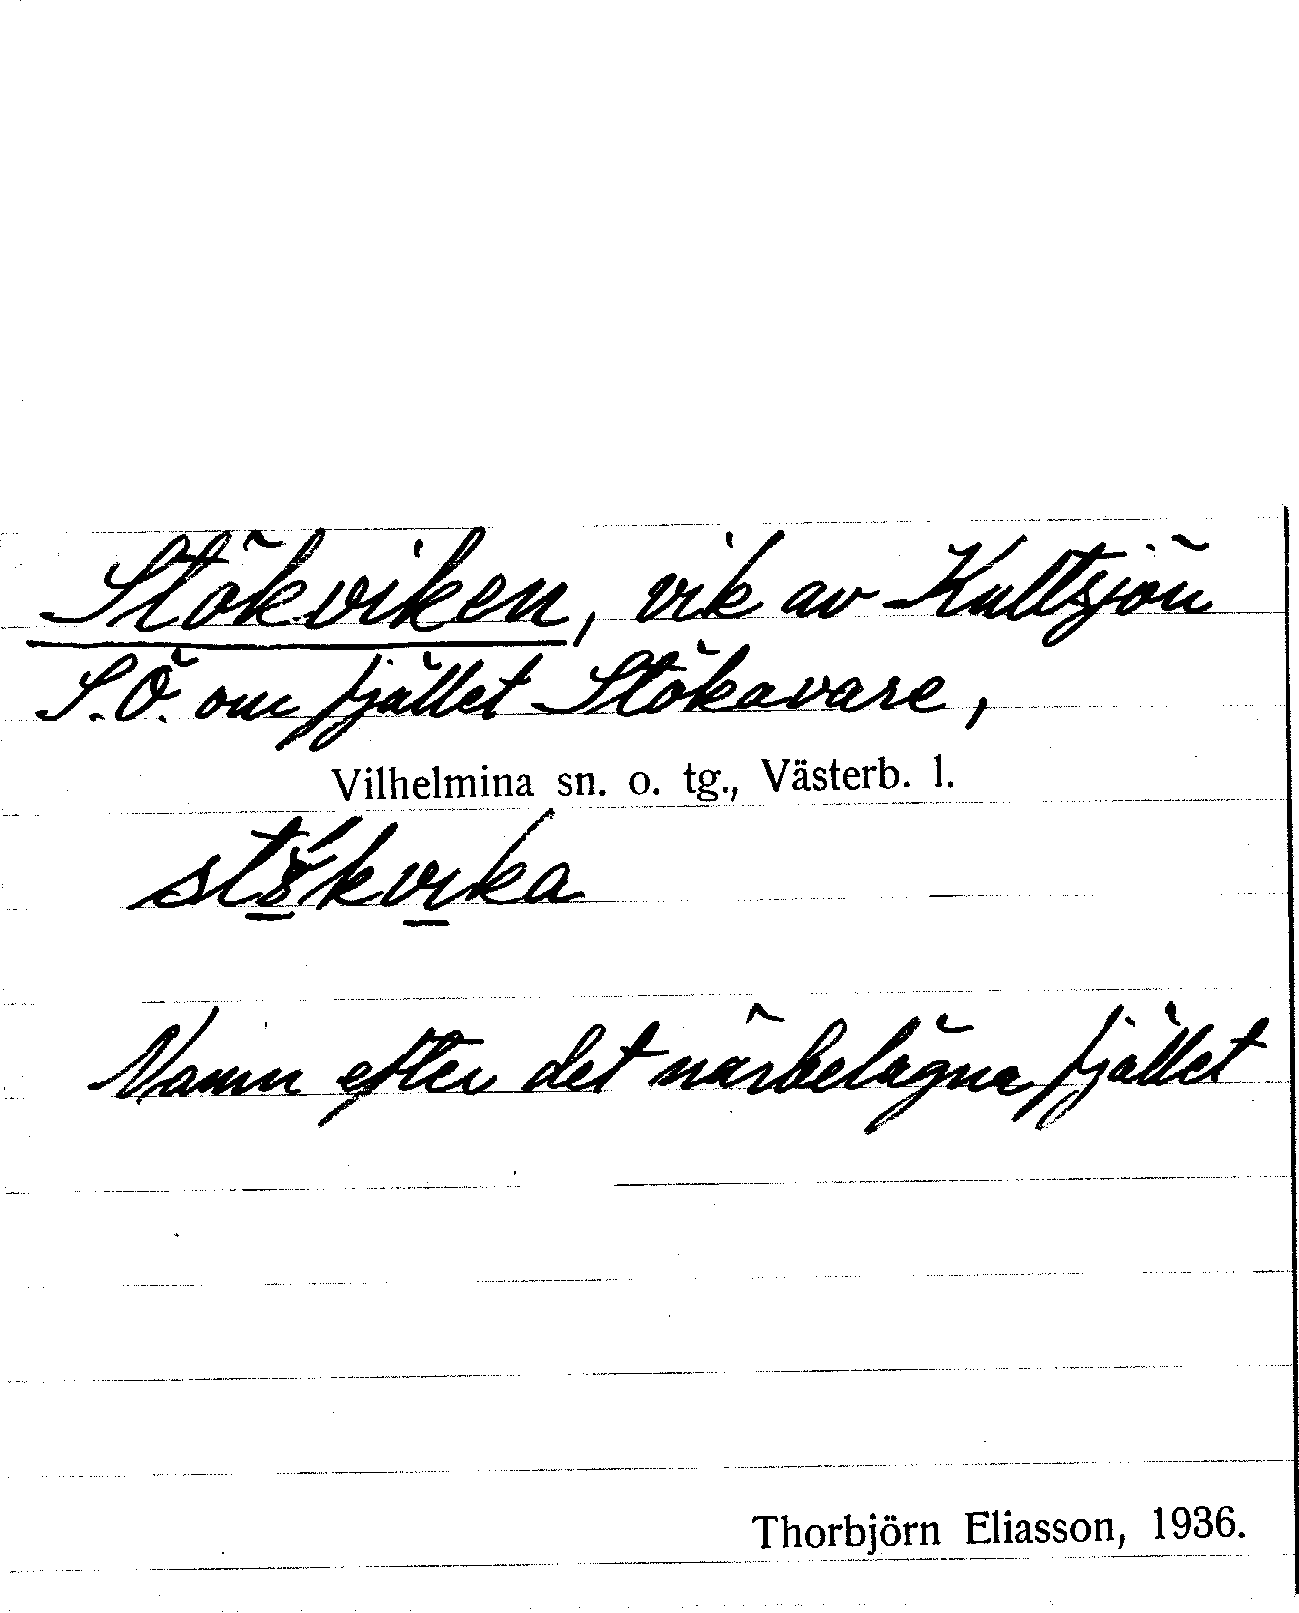 Stökviken, vik av Kultsjön
S.Ö. om fjället Stökavare,
Vilhelmina sn. o. tg., Västerb. l.
stö́kvika
Namn efter det närbelägna fjället
Thorbjörn Eliasson, 1936.